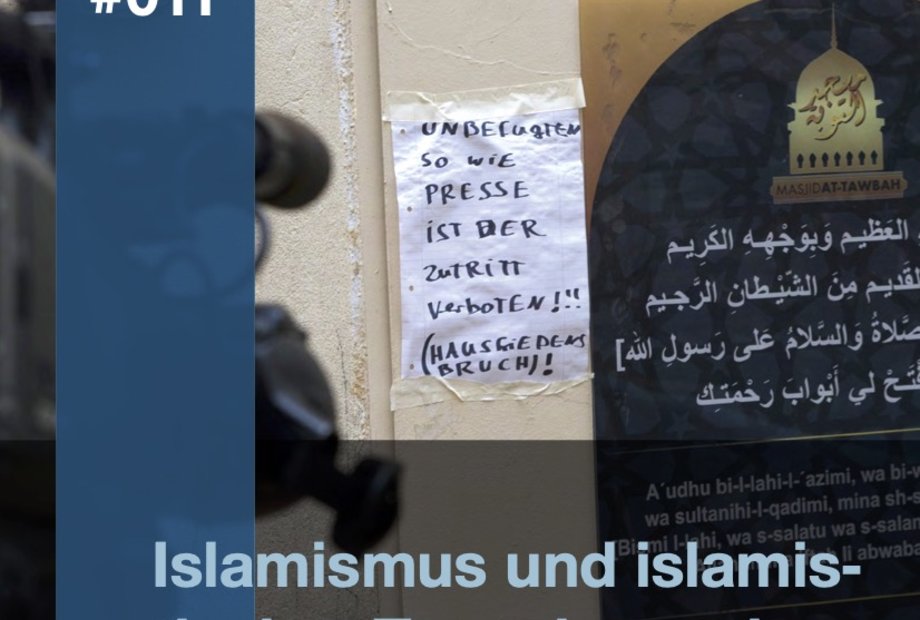 #011
UNBEFUGTEN
SO WIE
PRESSE
IST DER
ZUTRITT
VERBOTEN!!!
(HAUSFRIEDENS
BRUCH)!
مسجد
التوبة
MASJID AT-TAWBAH
العَظيم وَبِوَجْهِهِ الكَرِيم
القَديم مِنَ الشَّيْطانِ الرَّجيم
صَّلاةُ وَالسَّلامُ عَلى رَسولِ الله]
فْتَحْ لي أَبْوابَ رَحْمَتِك
A´udhu bi-l-lahi-l-´azimi, wa bi-w
wa sultanihi-l-qadimi, mina sh-s
l-lahi, wa s-salatu wa s-salam
li abwaba
Islamismus und islamis-